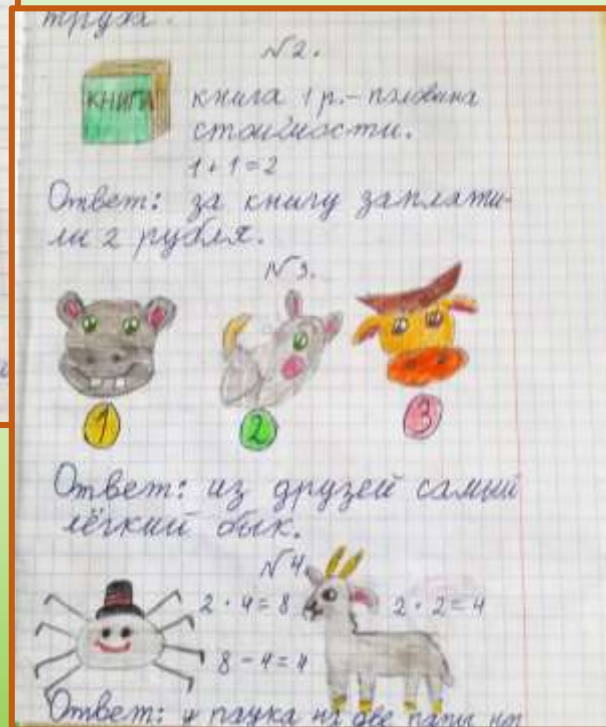 труха.
№2.
КНИГА
книга 1 р.- половина
стоимости.
1+1=2
Ответ: за книгу заплати-
ли 2 рубля.
№3.
1 2 3
Ответ: из друзей самый
лёгкий бык.
№4.
2·4=8 2·2=4
8-4=4
Ответ: у паука на две пары